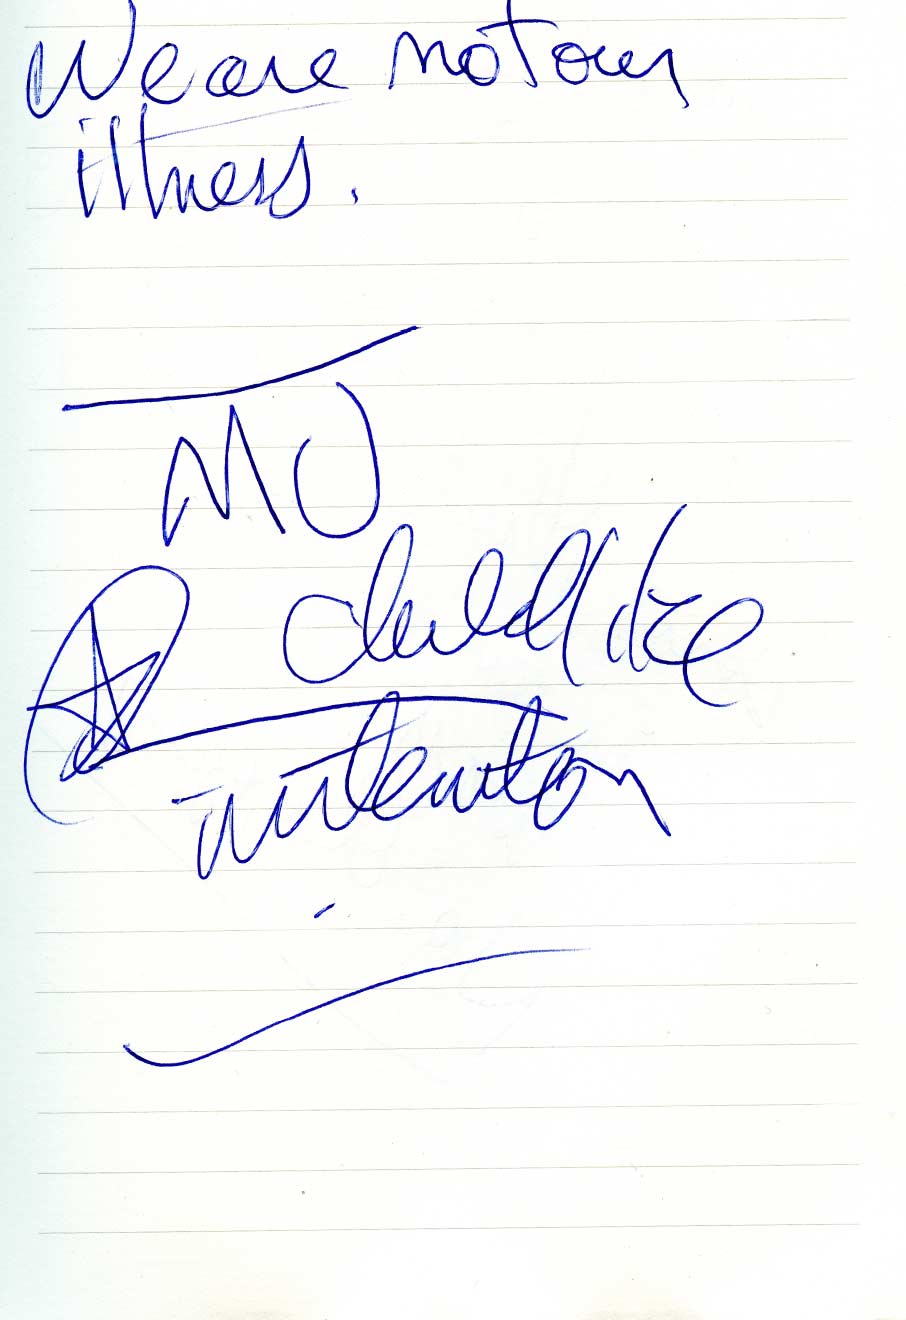 We are not our
illness.
MJ
childlike
intention